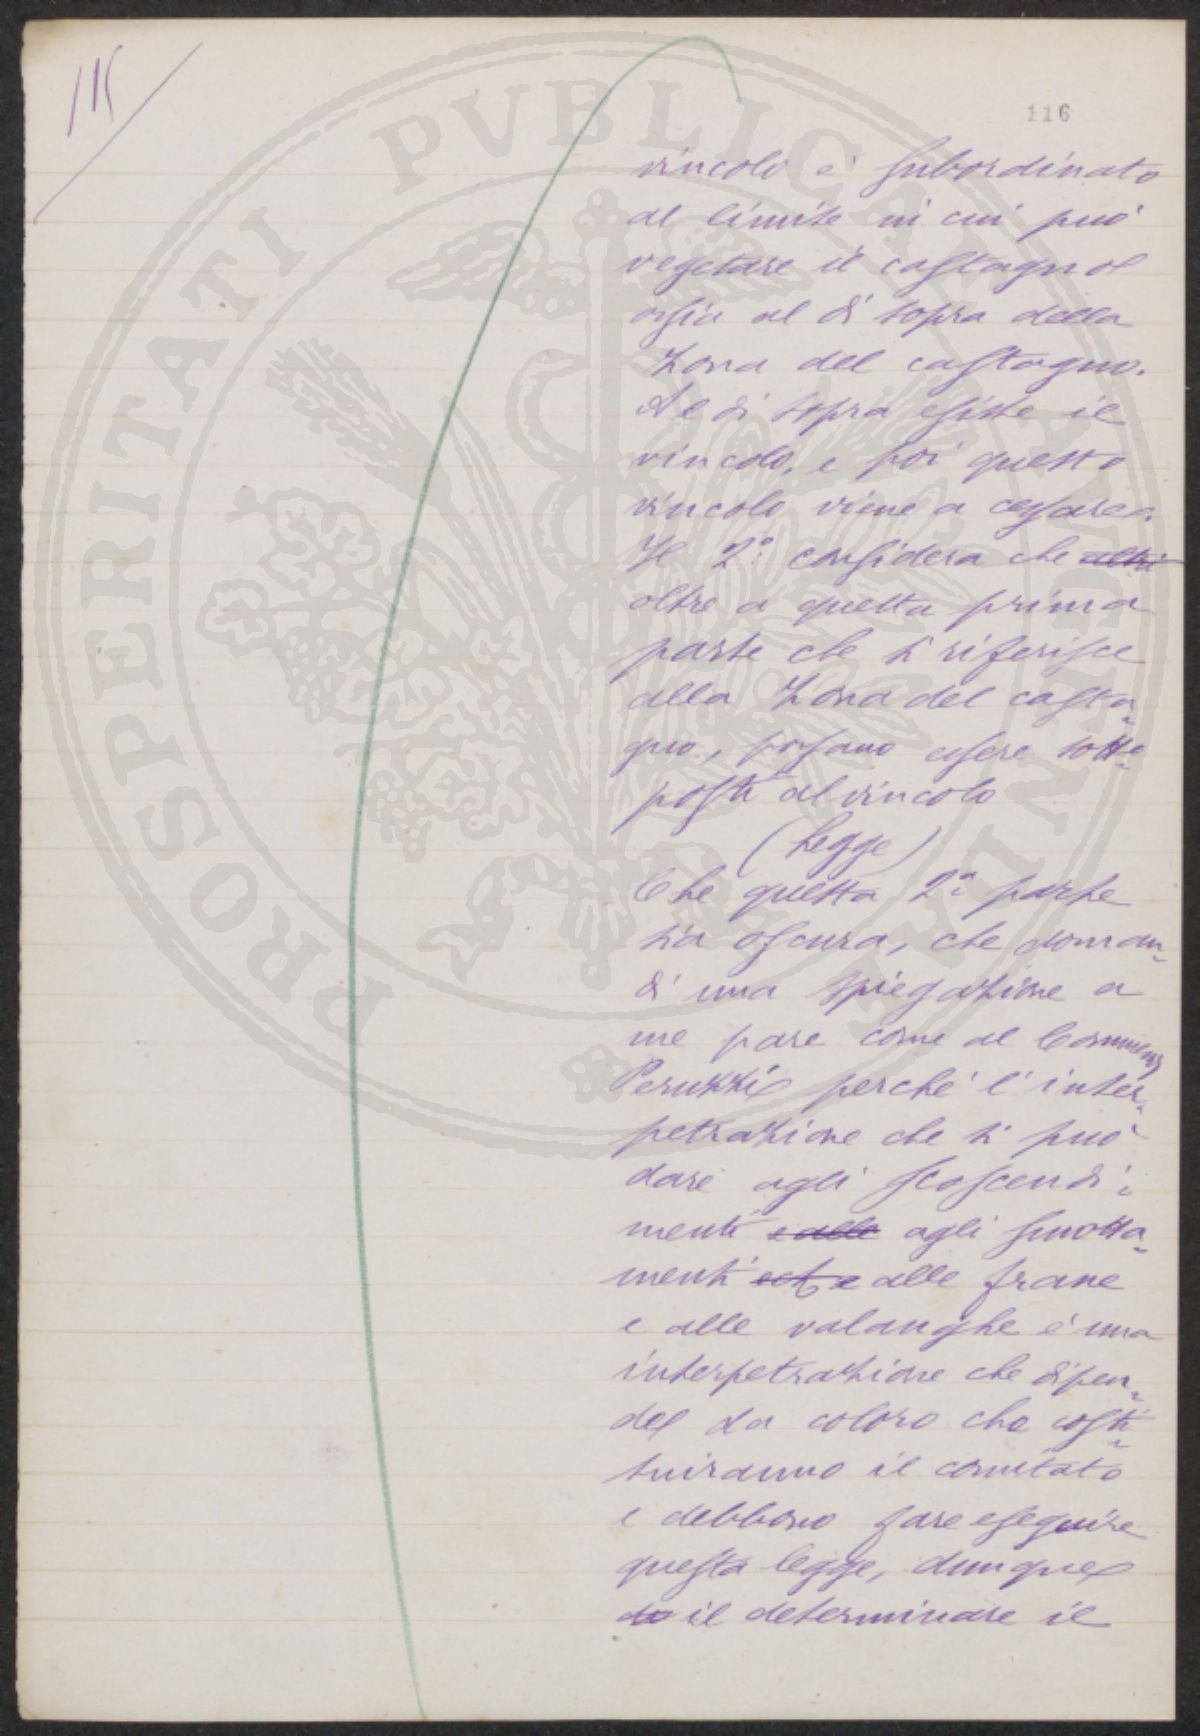 116
vincolo è subordinato
al limite in cui può
vegetare il castagno
ossia al di sopra della
zona del castagno.
Al di sopra esiste il
vincolo, e poi questo
vincolo viene a cessare.
Il 2º considera che altri
oltre a questa prima
parte che si riferisce
alla zona del casta-
gno, possano essere sotto-
posti al vincolo
(legge)
Che questa 2ª parte
sia oscura, che doman-
di una spiegazione a
me pare come al Commend
Peruzzi perché l'inter-
petrazione che si può
dare agli scoscendi-
menti e alle agli smotta-
menti ect e alle frane
e alle valanghe è una
interpetrazione che dipen-
de da coloro che costi-
tuiranno il comitato
e debbono fare eseguire
questa legge, dunque
do il determinare il
PROSPERITATI PVBLICAE